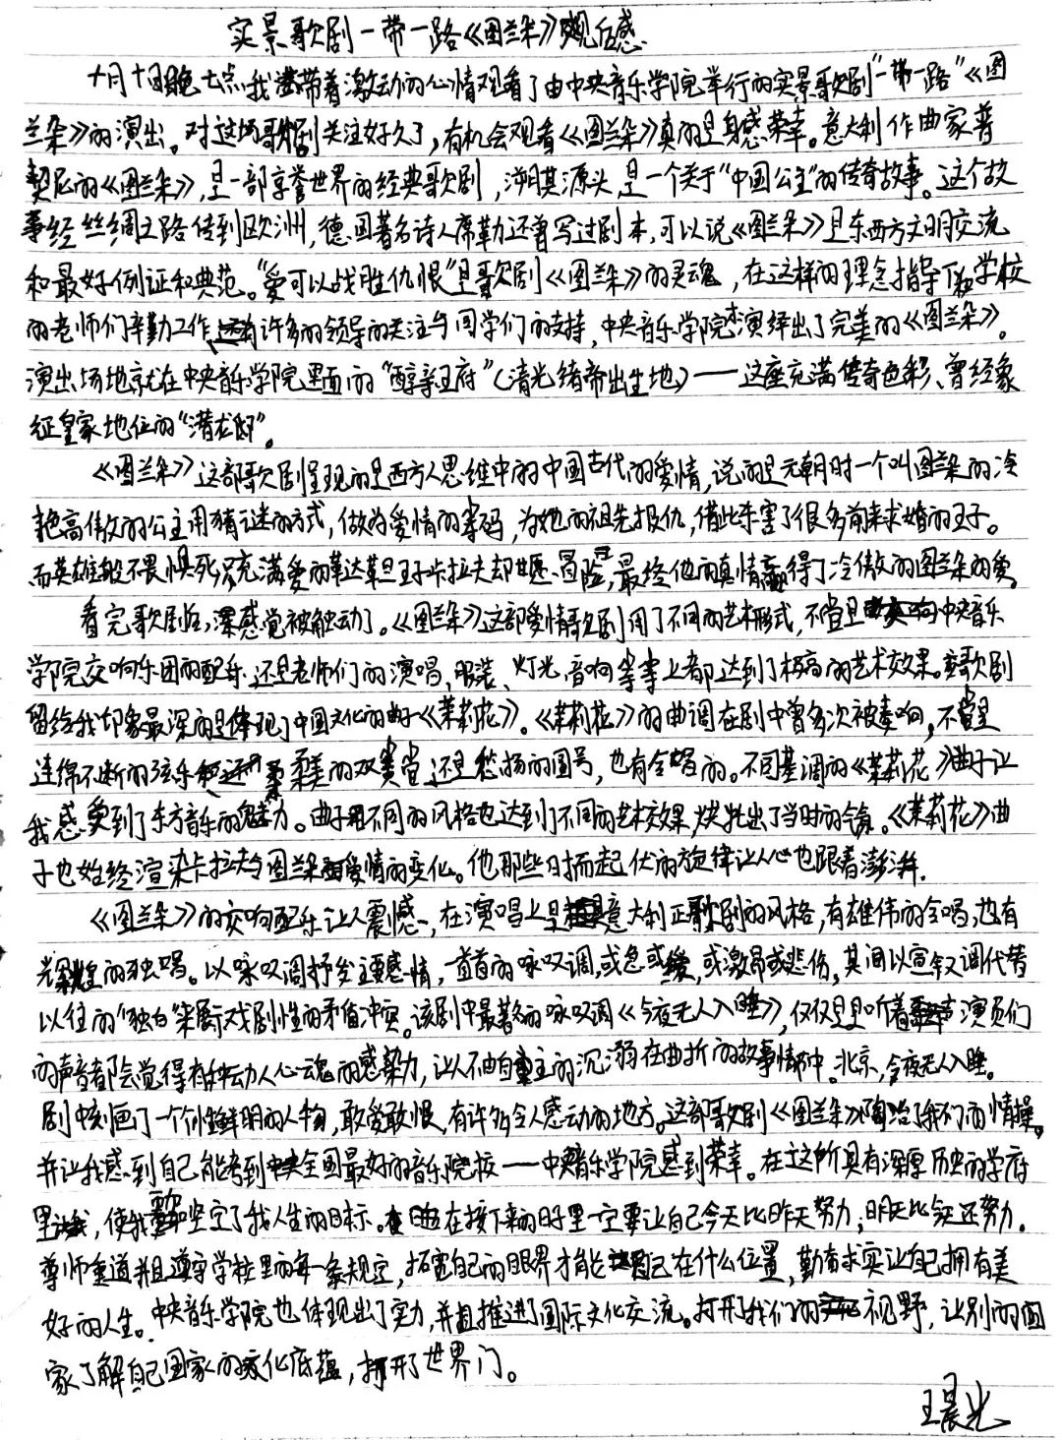 实景歌剧一带一路《图兰朵》观后感
十月十日晚七点我带着激动的心情观看了由中央音乐学院举行的实景歌剧"一带一路"《图
兰朵》的演出。对这场歌剧关注好久了,有机会观看《图兰朵》真的是身感荣幸。意大利作曲家普
契尼的《图兰朵》,是一部享誉世界的经典歌剧,溯其源头,是一个关于"中国公主"的传奇故事。这个故
事经丝绸之路传到欧洲,德国著名诗人席勒还曾写过剧本,可以说《图兰朵》是东西方文明交流
和最好例证和典范。"爱可以战胜仇恨"是歌剧《图兰朵》的灵魂,在这样的理念指导下学校
的老师们辛勤工作,还有许多的领导的关注与同学们的支持,中央音乐学院演绎出了完美的《图兰朵》。
演出场地就在中央音乐学院里面的"醇亲王府"(清光绪帝出生地)——这座充满传奇色彩、曾经象
征皇家地位的"潜龙邸"。
《图兰朵》这部歌剧呈现的是西方人思维中的中国古代的爱情,说的是元朝时一个叫图兰朵的冷
艳高傲的公主用猜谜的方式,做为爱情的筹码,为她的祖先报仇,借此杀害了很多前来求婚的王子。
而英雄般不畏惧死,充满爱的鞑达草旦王子卡拉夫却甘愿冒险,最终他的真情赢得了冷傲的图兰朵的爱。
看完歌剧后,深感觉被触动了。《图兰朵》这部爱情歌剧用了不同的艺术形式,不管是中央音乐
学院交响乐团的配乐,还是老师们的演唱,服装、灯光、音响等等上都达到了极高的艺术效果。歌剧
留给我印象最深的是体现了中国文化的曲子《茉莉花》。《茉莉花》的曲调在剧中曾多次被奏响,不管是
连绵不断的弦乐 柔美的双簧管还是悠扬的圆号,也有合唱的。不同基调的《茉莉花》曲子让
我感受到了东方音乐的魅力。曲子用不同的风格也达到了不同的艺术效果,烘托出了当时的气氛。《茉莉花》曲
子也始终渲染卡拉夫与图兰朵爱情的变化。他那些曰揣而起伏的旋律让人心也跟着澎湃。
《图兰朵》的交响配乐让人震憾,在演唱上是意大利正歌剧的风格,有雄伟的合唱,也有
光辉煌的独唱。以咏叹调抒发主要感情,一首首的咏叹调,或急或缓,或激昂或悲伤,其间以宣叙调代替
以往的"独白"来展示戏剧性的矛盾冲突。该剧中最著名的咏叹调《今夜无人入睡》,仅仅是听着演员们
的声音都会觉得有种动人心魂的感染力,让人不由自主的沉溺在曲折的故事情节中。北京,今夜无人入睡。
剧中刻画了一个个性鲜明的人物,敢爱敢恨,有许多令人感动的地方。这部歌剧《图兰朵》陶冶了我们的情操。
并让我感到自己能考到全国最好的音乐院校——中央音乐学院感到荣幸。在这所具有深厚历史的学府
里,使我更加坚定了我人生的目标。也在接下来的日子里一定要让自己今天比昨天努力,明天比今天还努力。
尊师重道并且遵守学校里的每一条规定,拓宽自己的眼界才能知道自己在什么位置,勤奋求实让自己拥有美
好的人生。中央音乐学院也体现出了实力,并且推进了国际文化交流。打开了我们的视野,让别的国
家了解自己国家的文化底蕴,打开了世界门。
王晨光